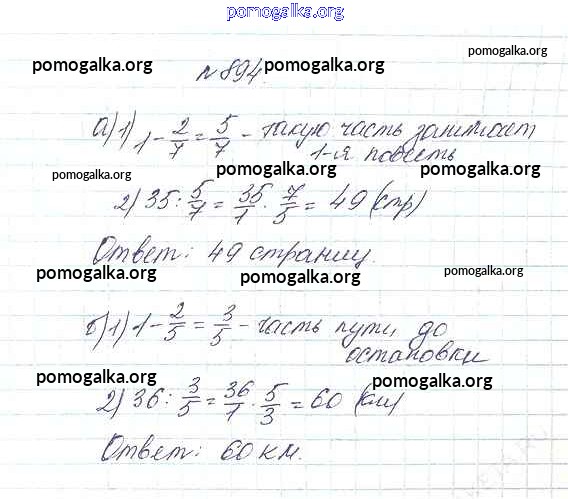 pomogalka.org
pomogalka.org
pomogalka.org
pomogalka.org
№894.
а) 1) 1 - 2/7 = 5/7 - такую часть занимает
1-я повесть
pomogalka.org
pomogalka.org
pomogalka.org
2) 35 : 5/7 = 35/1 · 7/5 = 49 (стр)
Ответ: 49 страниц.
pomogalka.org
pomogalka.org
pomogalka.org
б) 1) 1 - 2/5 = 3/5 - часть пути, до
остановки
pomogalka.org
pomogalka.org
2) 36 : 3/5 = 36/1 · 5/3 = 60 (км)
Ответ: 60 км.